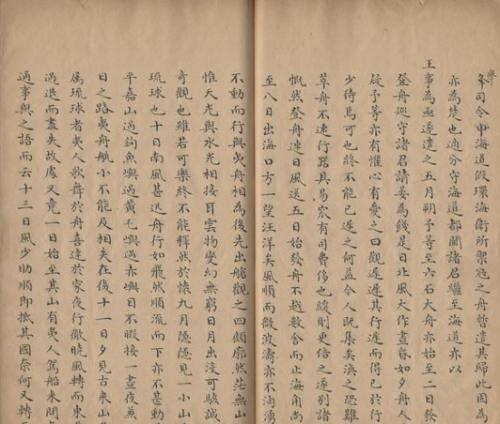 各司今申海道假環海衛所禦冦之舟皆遣其歸此因為
亦為楚也適分守海道都閫諸君繼至海道亦以
王事為亟遂遣之五月朔予等至六石大舟亦始至二日發
登舟巡守諸君請宴為餞是日北風大作晝昏如夕舟人
疑予等亦有懼心有愛之曰觀遲遲其行遲而得已於行
少待焉可也終不能已遲之何益今人既集矣渙之恐難
草舟不速行器具易窳有司費侈也緩則更倍之遂別諸
慨然登舟連日風送五日始發舟不越數舍而止海角尚
至八日出海口方一望汪洋矣風順而微波濤亦不洶湧
不動而行與夷舟相為後先出艙觀之四顧廓然茫無山
惟天光與水光相接耳雲物變幻無窮日月出沒可駭誠
奇觀也雖若可樂終不能釋然於懷九月隱隱見一小山
琉球也十日南風甚迅舟行如飛然順流而下亦不甚動
平嘉山過釣魚嶼過黃毛嶼過赤嶼目不暇接一晝夜兼
日之路夷舟航小不能及相失在後十一日夕見古米山
属琉球者夷人歌舞於舟喜達於家夜行徹曉風轉而東
過退而盡失故處又竟一日始至其山有夷人駕船來問
過事與之語而云十三日風少助順即抵其國奈何又轉